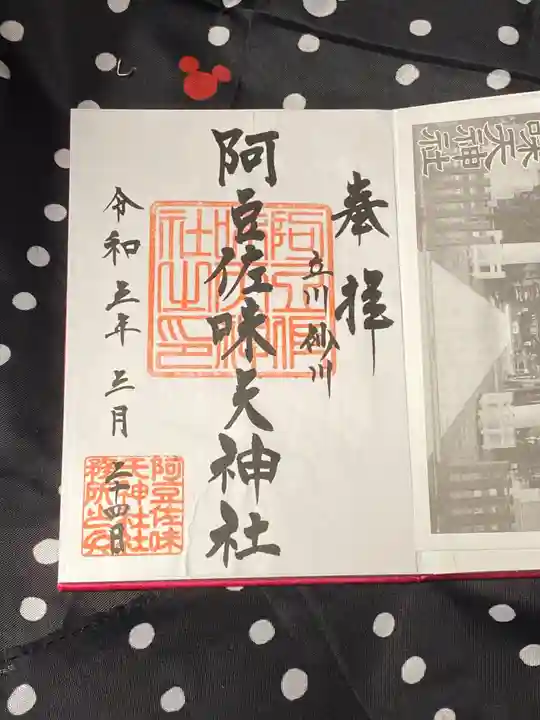 味天神社
奉拝
立川砂川
阿豆佐味天神社
令和三年三月二十四日
阿豆佐味
天神社社
務所之印